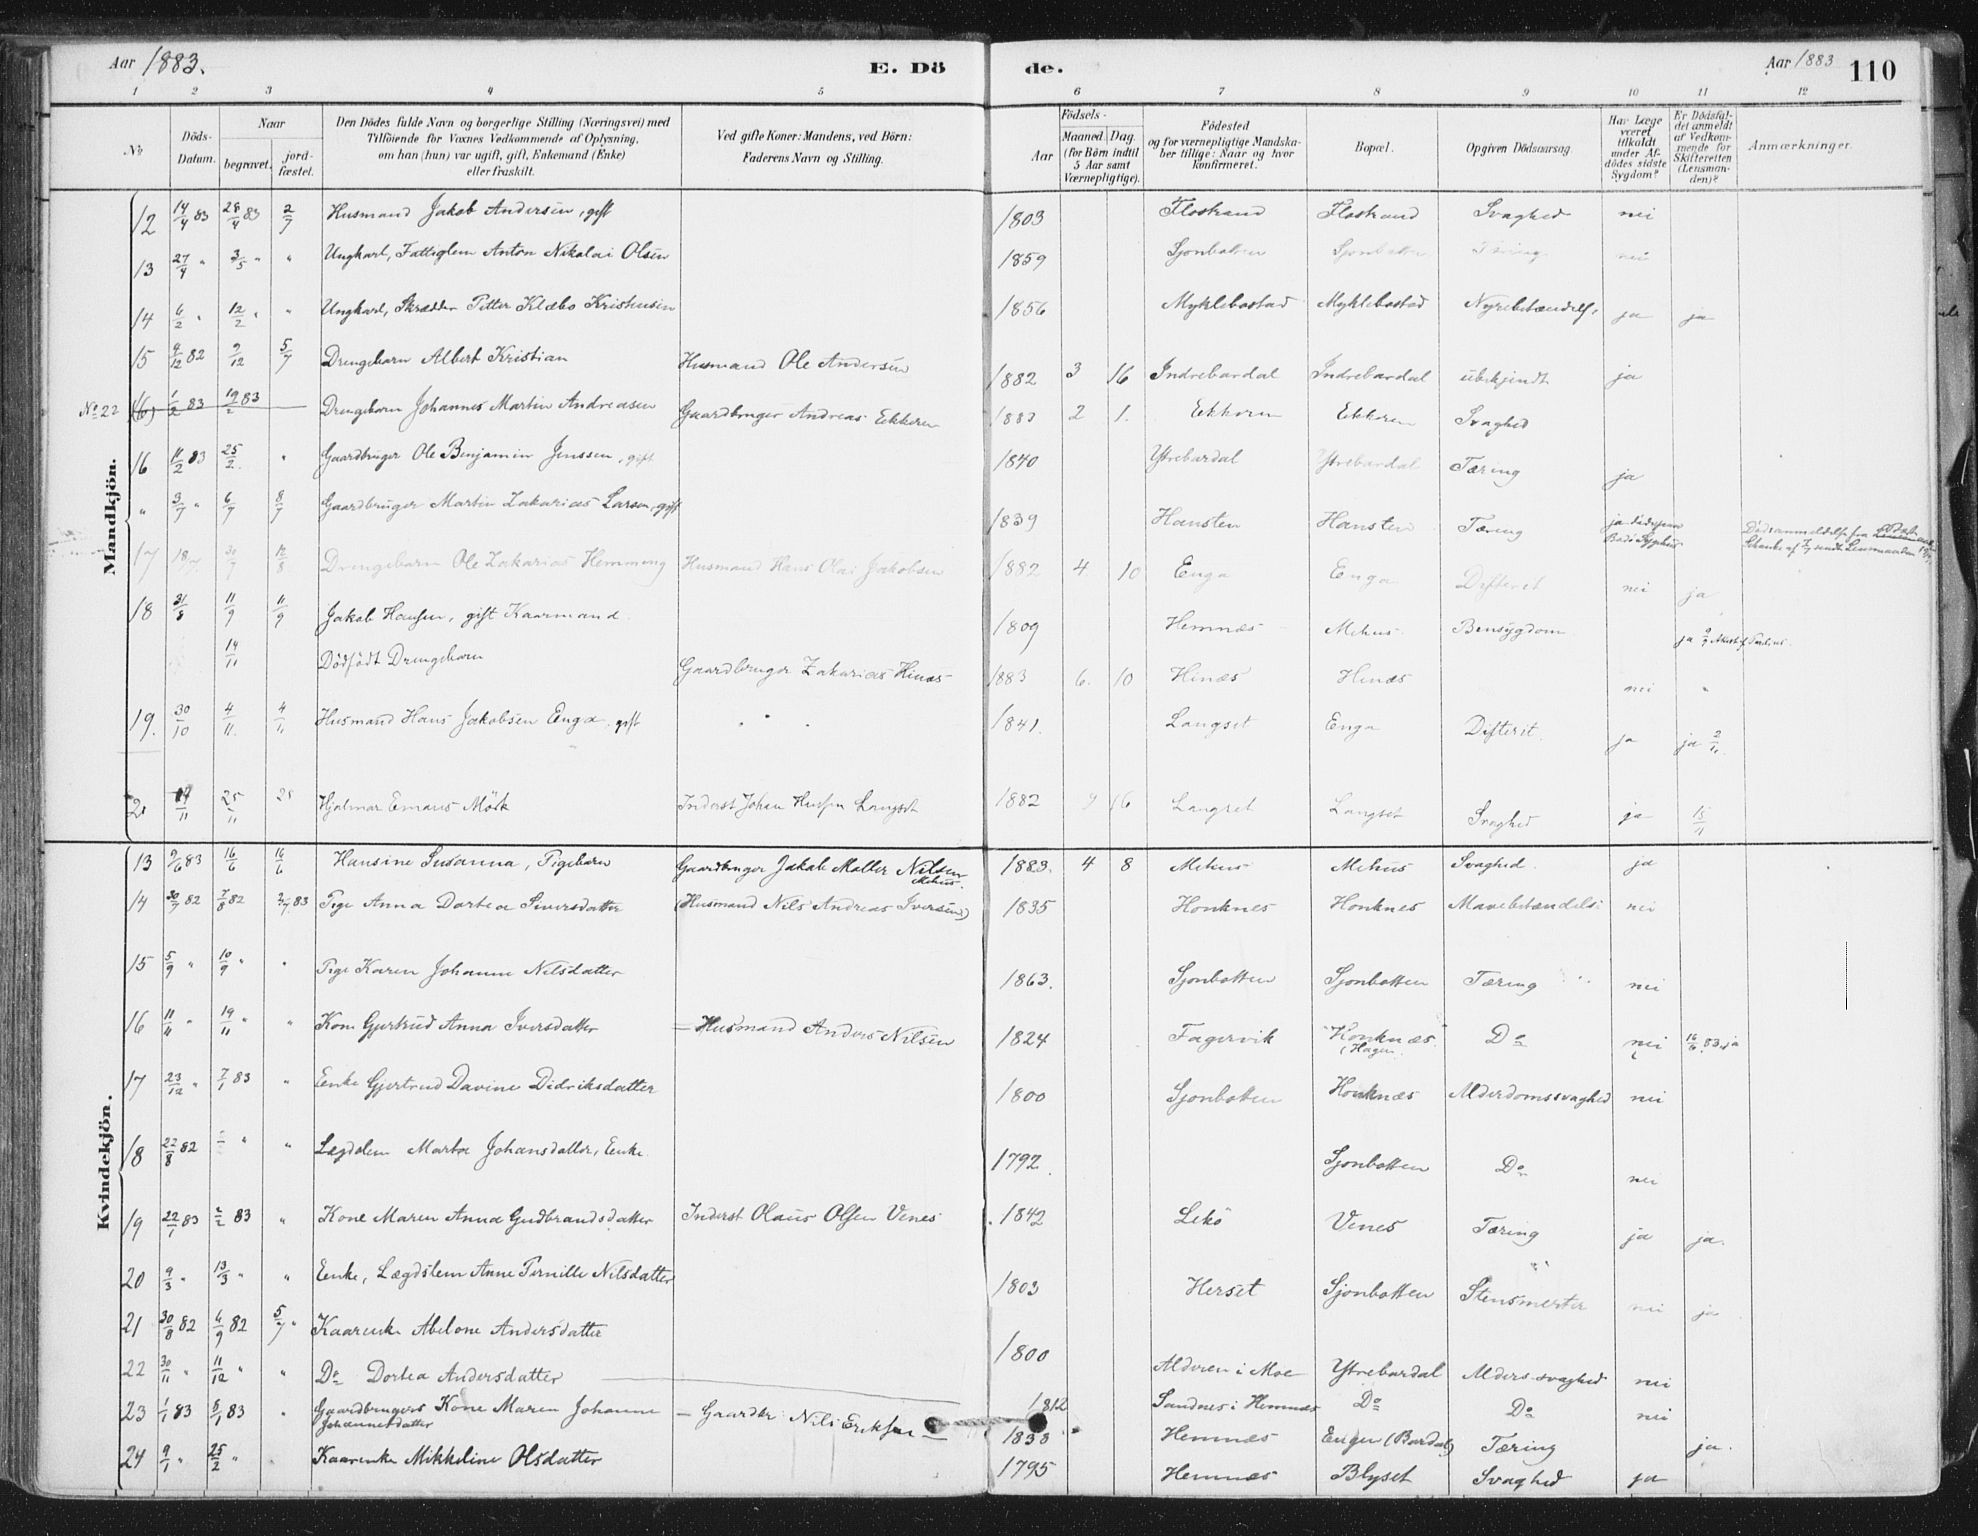 Aar 1883. E. Dö de. Aar 1883 110
1 2 3 4 5 6 7 8 9 10 11 12
№ Döds-Datum. Naar begravet. jordfæstet. Den Dödes fulde Navn og borgerlige Stilling (Næringsvei) med Tilföiende for Voxnes Vedkommende af Oplysning, om han (hun) var ugift, gift, Enkemand (Enke) eller fraskilt. Ved gifte Koner: Mandens, ved Börn: Faderens Navn og Stilling. Födsels- Aar Maaned. Dag. (for Börn indtil 5 Aar samt Værnepligtige). Födested og for værnepligtige Mandskaber tillige: Naar og hvor konfirmeret. Bopæl. Opgiven Dödsaarsag. Har Læge været tilkaldt under Afdödes sidste Sygdom? Er Dödsfaldet anmeldt af Vedkommende for Skifteretten (Lensmanden)? Anmærkninger.
Mandkjön.
12 14/4 83 28/4 83 2/7 Husmand Jakob Andersen, gift 1803 Flostrand Flostrand Svaghed nei
13 27/4 " 3/5 " " Ungkarl, Fattiglem Anton Nikolai Olsen 1859 Sjonbotten Sjonbotten Tæring nei
14 6/2 " 12/2 " " Ungkarl, Skrædder Petter Klæbo Kristensen 1856 Myklebostad Myklebostad Nyrebetændelse ja ja
15 4/12 82 9/12 5/7 Drengebarn Albert Kristian Husmand Ole Andersen 1882 3 16 Indrebardal Indrebardal ubekjendt ja
No 22 16) 1/2 83 19/2 83 Drengebarn Johannes Martin Andreasen Gaardbruger Andreas Eekkoren 1883 2 1. Eekkoren Eekkoren Svaghed
16 11/2 83 25/2 " Gaardbruger Ole Benjamin Jenssen, gift 1840 Ytrebardal Ytrebardal Tæring ja
" 3/7 " 6/7 8/7 Gaardbruger Martin Zakarias Larsen, gift 1839 Hansten Hansten Tæring ja Bodø Sygehus
17 18/7 30/7 12/8 Drengebarn Ole Zakarias Hemming Husmand Hans Olai Jakobsen 1882 4 10 Enga Enga Difterit nei ja
18 31/8 11/9 11/9 Jakob Hansen, gift Kaarmand. 1809 Hemnæs Mehus Bensygdom ja
14/11 Dødfødt Drengebarn Gaardbruger Zakarias Hinæs 1883 6. 10 Hinæs Hinæs nei "
19. 30/10 4/11 4/11 Husmand Hans Jakobsen Enga, gift 1841. Langset Enga Difterit. ja ja 2/11
20 14/11 25/11 25 Hjalmar Emaus Mörk Inderst Johan Hansen Langset 1882 9 16 Langset Langset Svaghed ja 15/11
Kvindekjön.
13 9/6 83 16/6 16/6 Hansine Susanna, Pigebarn Gaardbruger Jakob Møller Nilsen Mehus. 1883. 4 8 Mehus Mehus Svaghed. ja
14 30/7 82 7/8 82 2/7 83 Pige Anna Dortea Siversdatter (Husmand Nils Andreas Iversen) 1835 Honknes Honknes Mavebetændelse nei
15 5/9 " 10/9 " " Pige Karen Johanne Nilsdatter 1863. Sjonbotten Sjonbotten Tæring nei
16 11/11 " 19/11 " " Kone Gjertrud Anna Iversdatter – Husmand Anders Nilsen 1824 Fagervik Honknæs (Hagen Do nei 16/6 83. ja
17 23/12 " 7/1 83 " Enke Gjertrud Davine Didriksdatter 1800 Sjonbotten Honknæs Alderdomssvaghed nei
18 22/8 82 " " Lægdslem Marta Johansdatter, Enke. 1792. Sjonbotten Do nei
19 22/1 83 2/2 83 " Kone Maren Anna Gudbrandsdatter Inderst Olaus Olsen Venes 1842 Lekö Venes Tæring ja ja.
20 9/3 " 13/3 " " Enke, Lægdslem Anne Pernille Nilsdatter 1803 Herset Sjonbotten Stensmerter nei ja
21 30/8 82 4/9 82 5/7 " Kaarenke Abelone Andersdatter 1800
22 30/11 " 11/12 " " Do Dortea Andersdatter Alderen i Moe Ytrebardal Alders-svaghed nei
23 1/1 83 5/1 83 " Gaardbrugers Kone Maren Johanne Johannesdatter – Gaardbr: Nils Eriksen – 1812 Sandnes i Hemnæs Do Do nei
1833 Hemnæs Enger (Bardal) Tæring ja.
24 9/1 " 25/2 " Kaarenke Mikkeline Olsdatter 1795 Hemnæs Blyset Svaghed ja